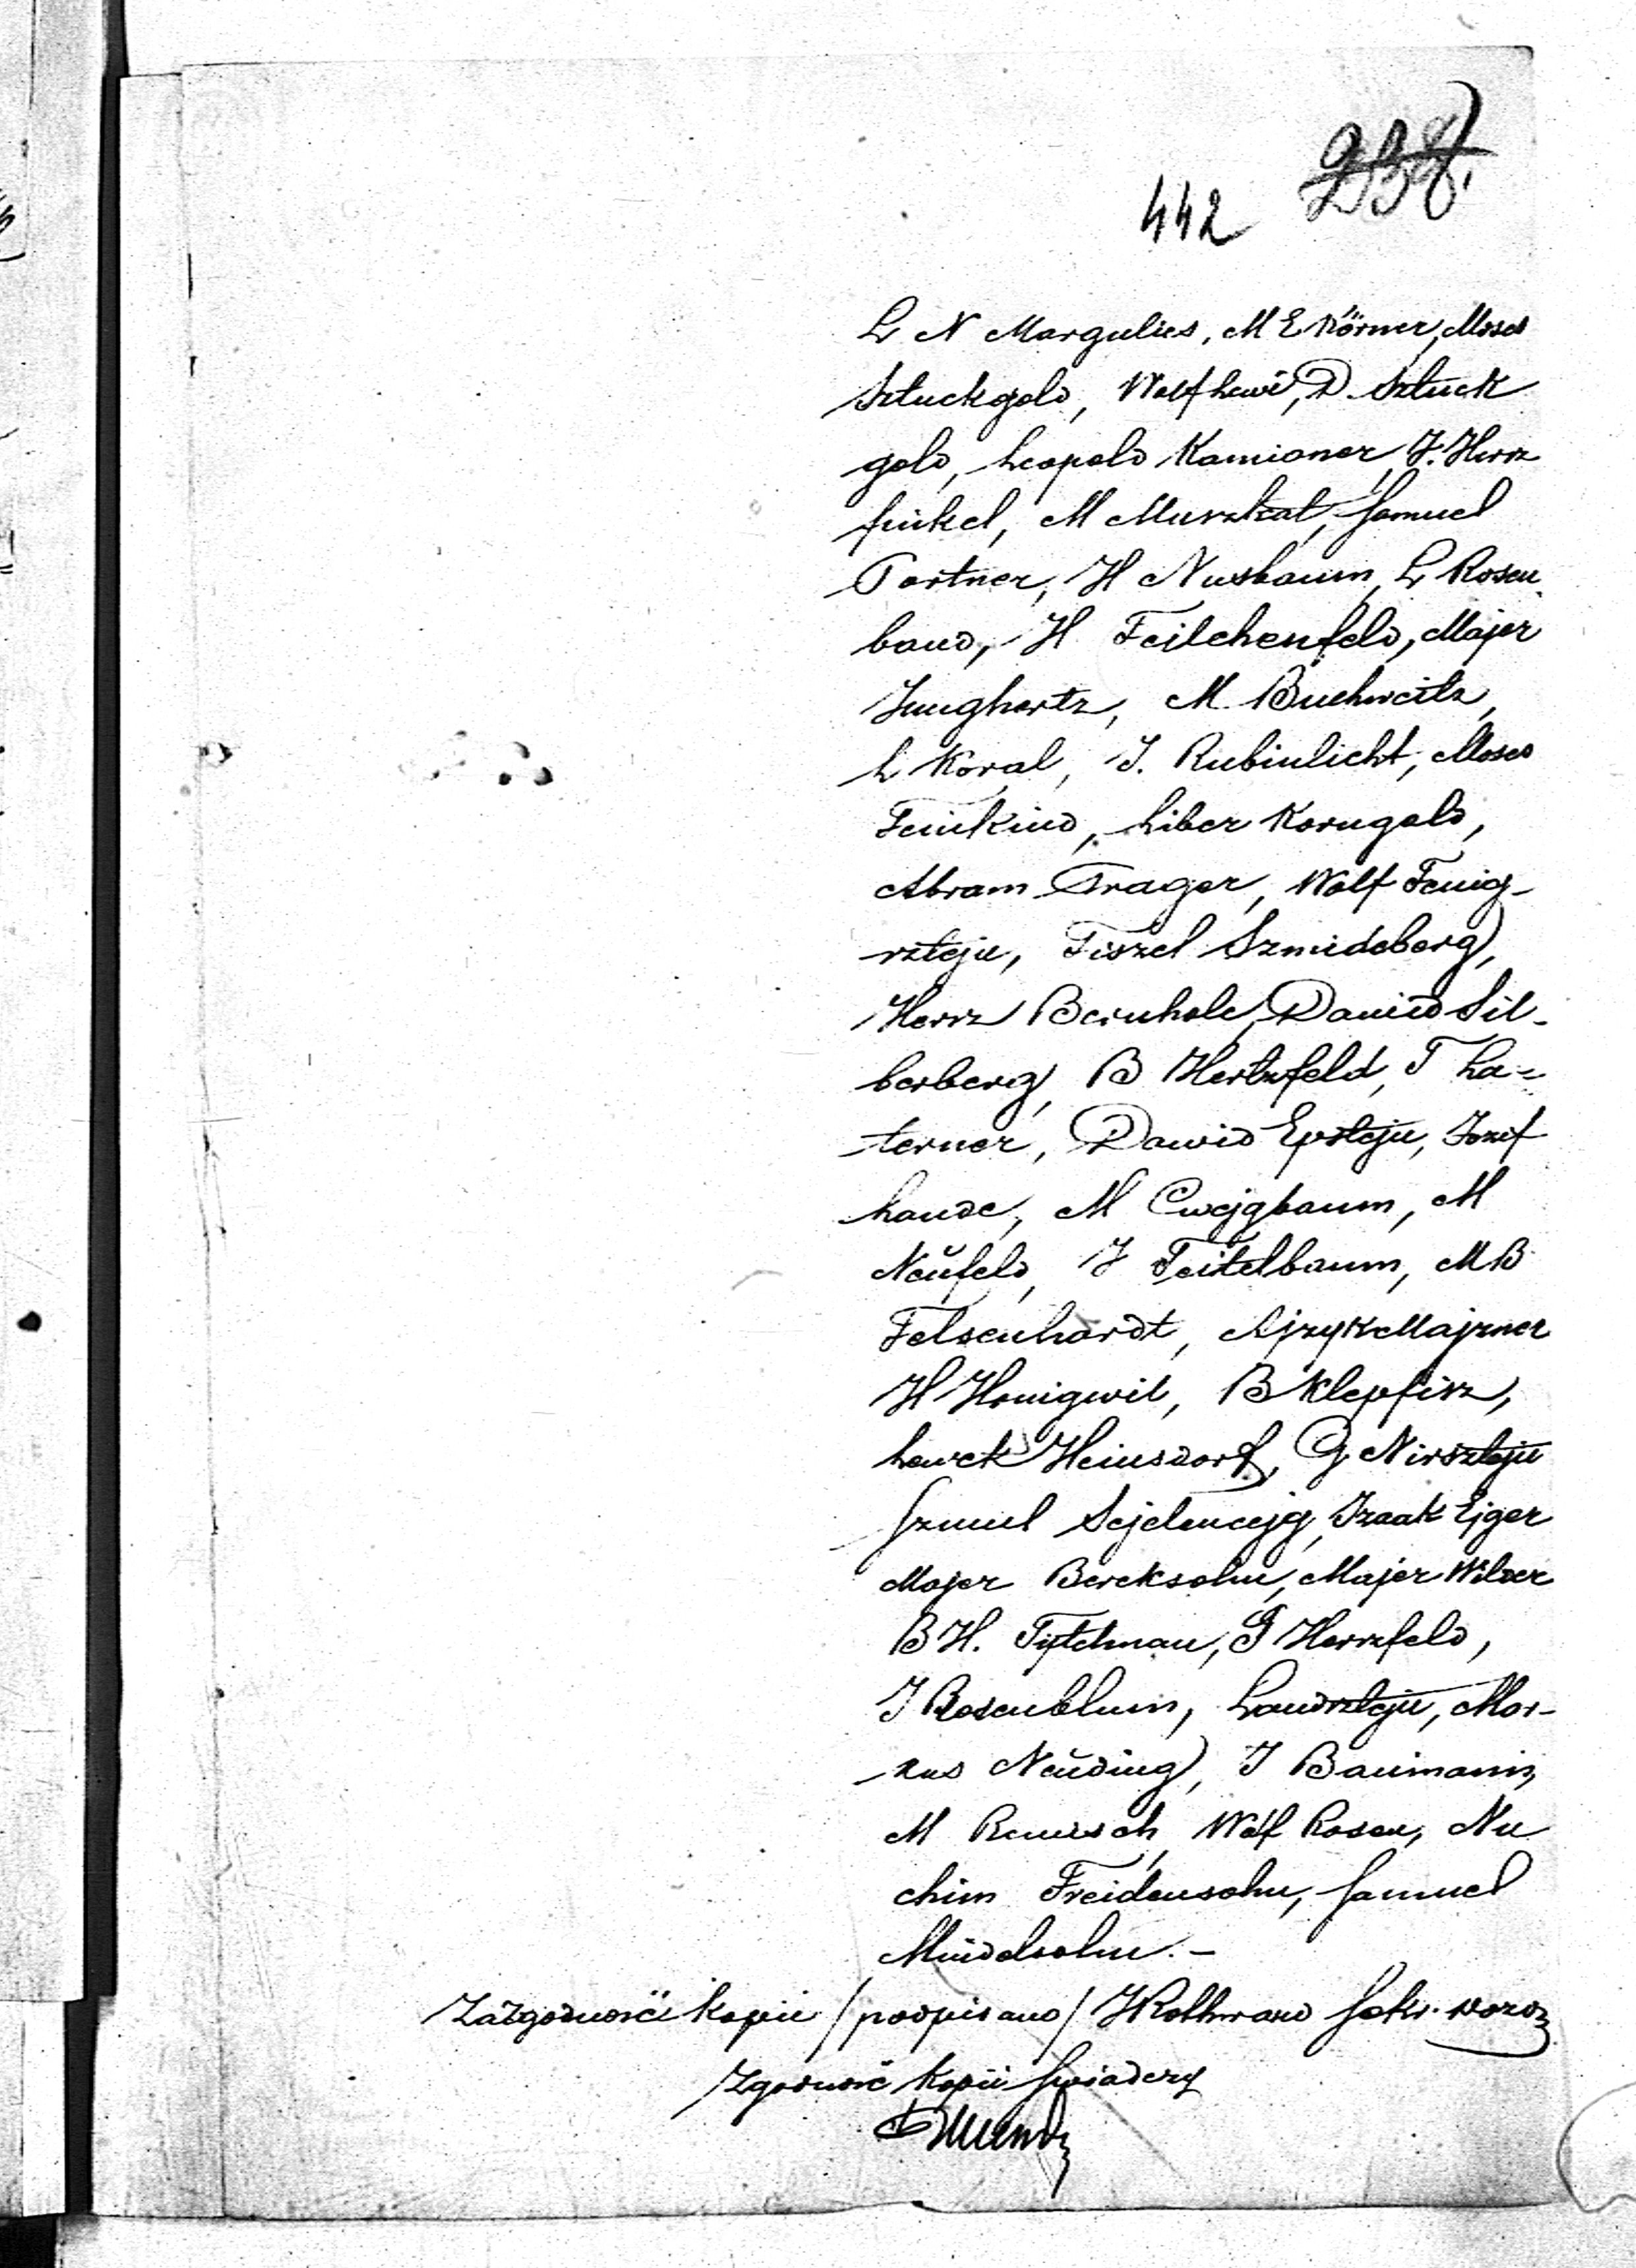 238
442
L N Margulies, M E Körner, Moses
Sztuckgold, Wolf Lewi, D. Sztuck
gold, Leopold Kamioner, J. Herz
finkel, M Muszkat, Samuel
Portner, H Nusbaum, L Rosen
band, H Feilchenfeld, Majer
Junghertz, M. Buchweitz,
L Koral, J. Rubinlicht, Moses
Feinkind, Liber Korngold,
Abram Trager, Wolf Fenig-
sztejn, Fiszel Szmideberg,
Hersz Bernhole, Dawid Sil-
berberg, B Hertzfeld, T La-
terner, Dawid Epstejn, Jozef
Lande, M Cwejgbaum, M
Neŭfeld, J Teitelbaum, M B
Felsenhardt, Ajzyk Majzner
H Honigwil, B Klepfisz,
Lewek Heinsdorf, G Nirsztejn
Szmul Sejdencejg, Izaak Ejger
Majer Bereksohn, Majer Wilder
B H. Tytelman, G Herzfeld,
J Rosenblum, Landsztejn, Mor-
kus Neŭding, J Baumann,
M Wolf Rosen, Nu
chim Freidensohn, Samuel
Mindelsohn. –
Za zgodność kopii /podpisano/ JRothwand Sekr. dozoru
Zgodność kopii świadczy